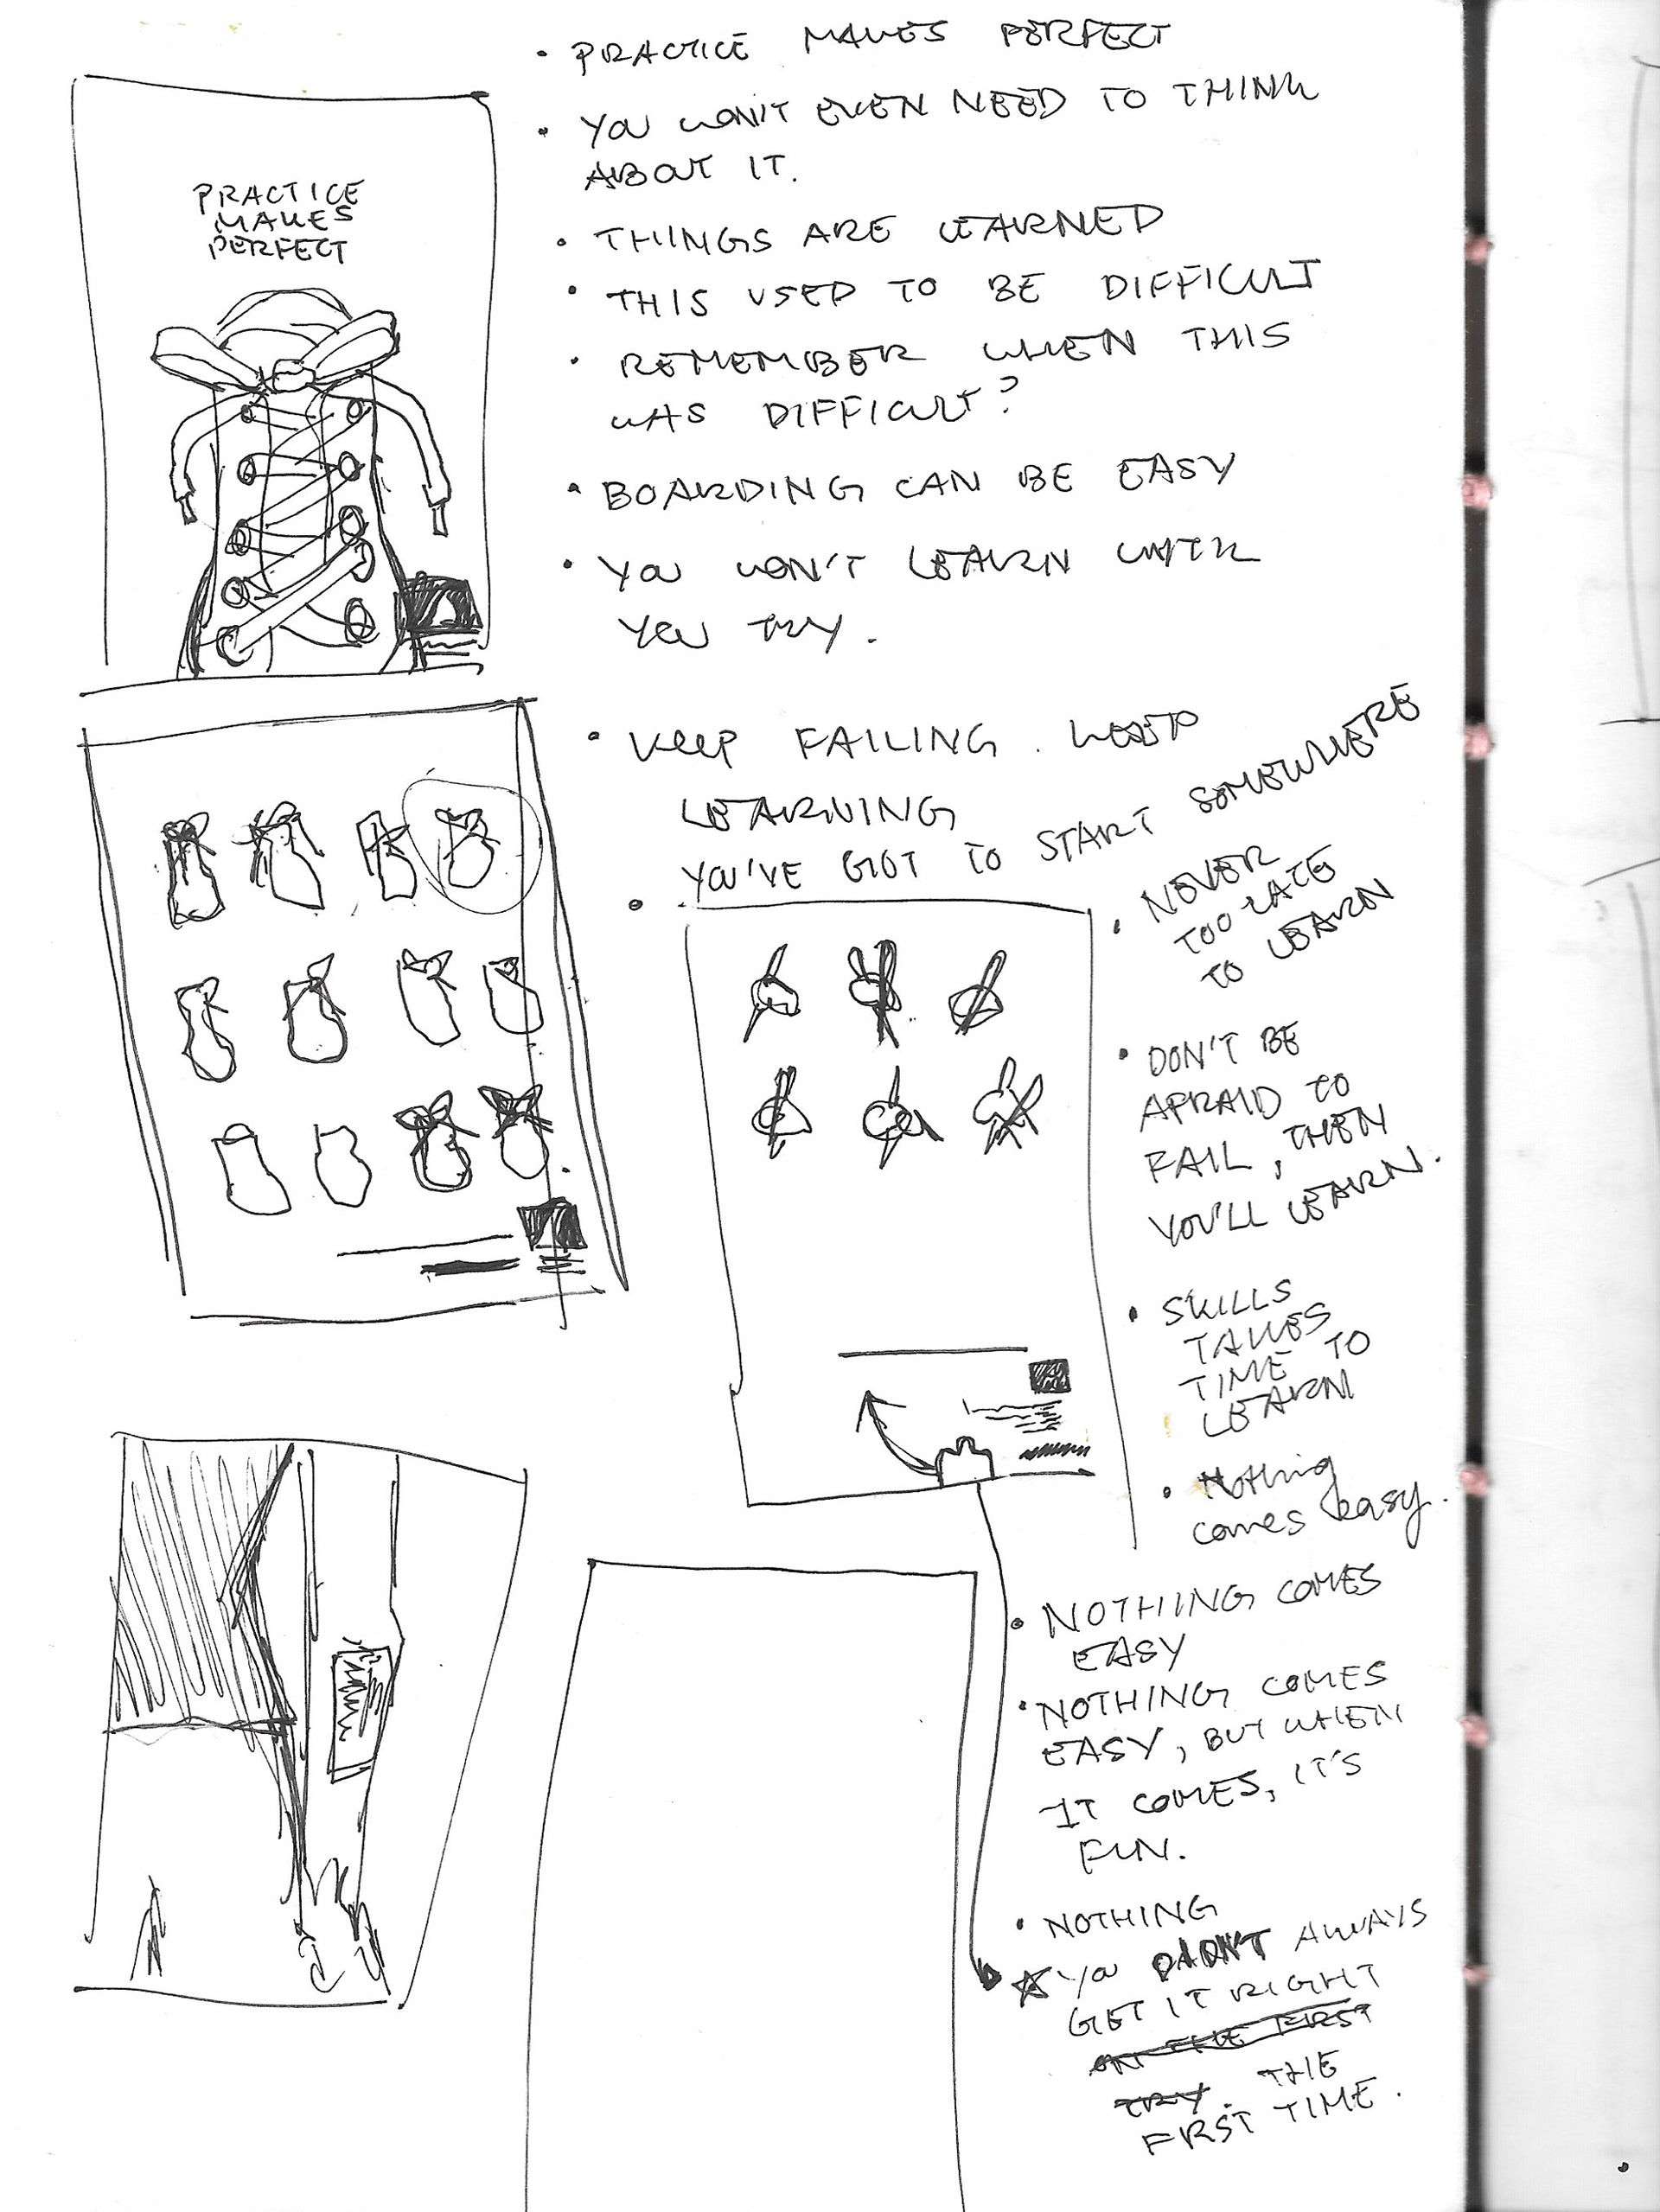 • PRACTICE MAKES PERFECT
• YOU WON'T EVEN NEED TO THINK
ABOUT IT.
• THINGS ARE LEARNED
• THIS USED TO BE DIFFICULT
• REMEMBER WHEN THIS
WAS DIFFICULT?
• BOARDING CAN BE EASY
• YOU WON'T LEARN UNTIL
YOU TRY.
PRACTICE
MAKES
PERFECT
• KEEP FAILING. KEEP
LEARNING
• YOU'VE GOT TO START SOMEWHERE
• NEVER
TOO LATE
TO LEARN
• DON'T BE
AFRAID TO
FAIL, THEN
YOU'LL LEARN.
• SKILLS
TAKES
TIME TO
LEARN
• Nothing
comes easy.
• NOTHING COMES
EASY
• NOTHING COMES
EASY, BUT WHEN
IT COMES, IT'S
FUN.
• NOTHING
☆ YOU DIDN'T ALWAYS
GET IT RIGHT
ON THE FIRST
TRY. THE
FIRST TIME.